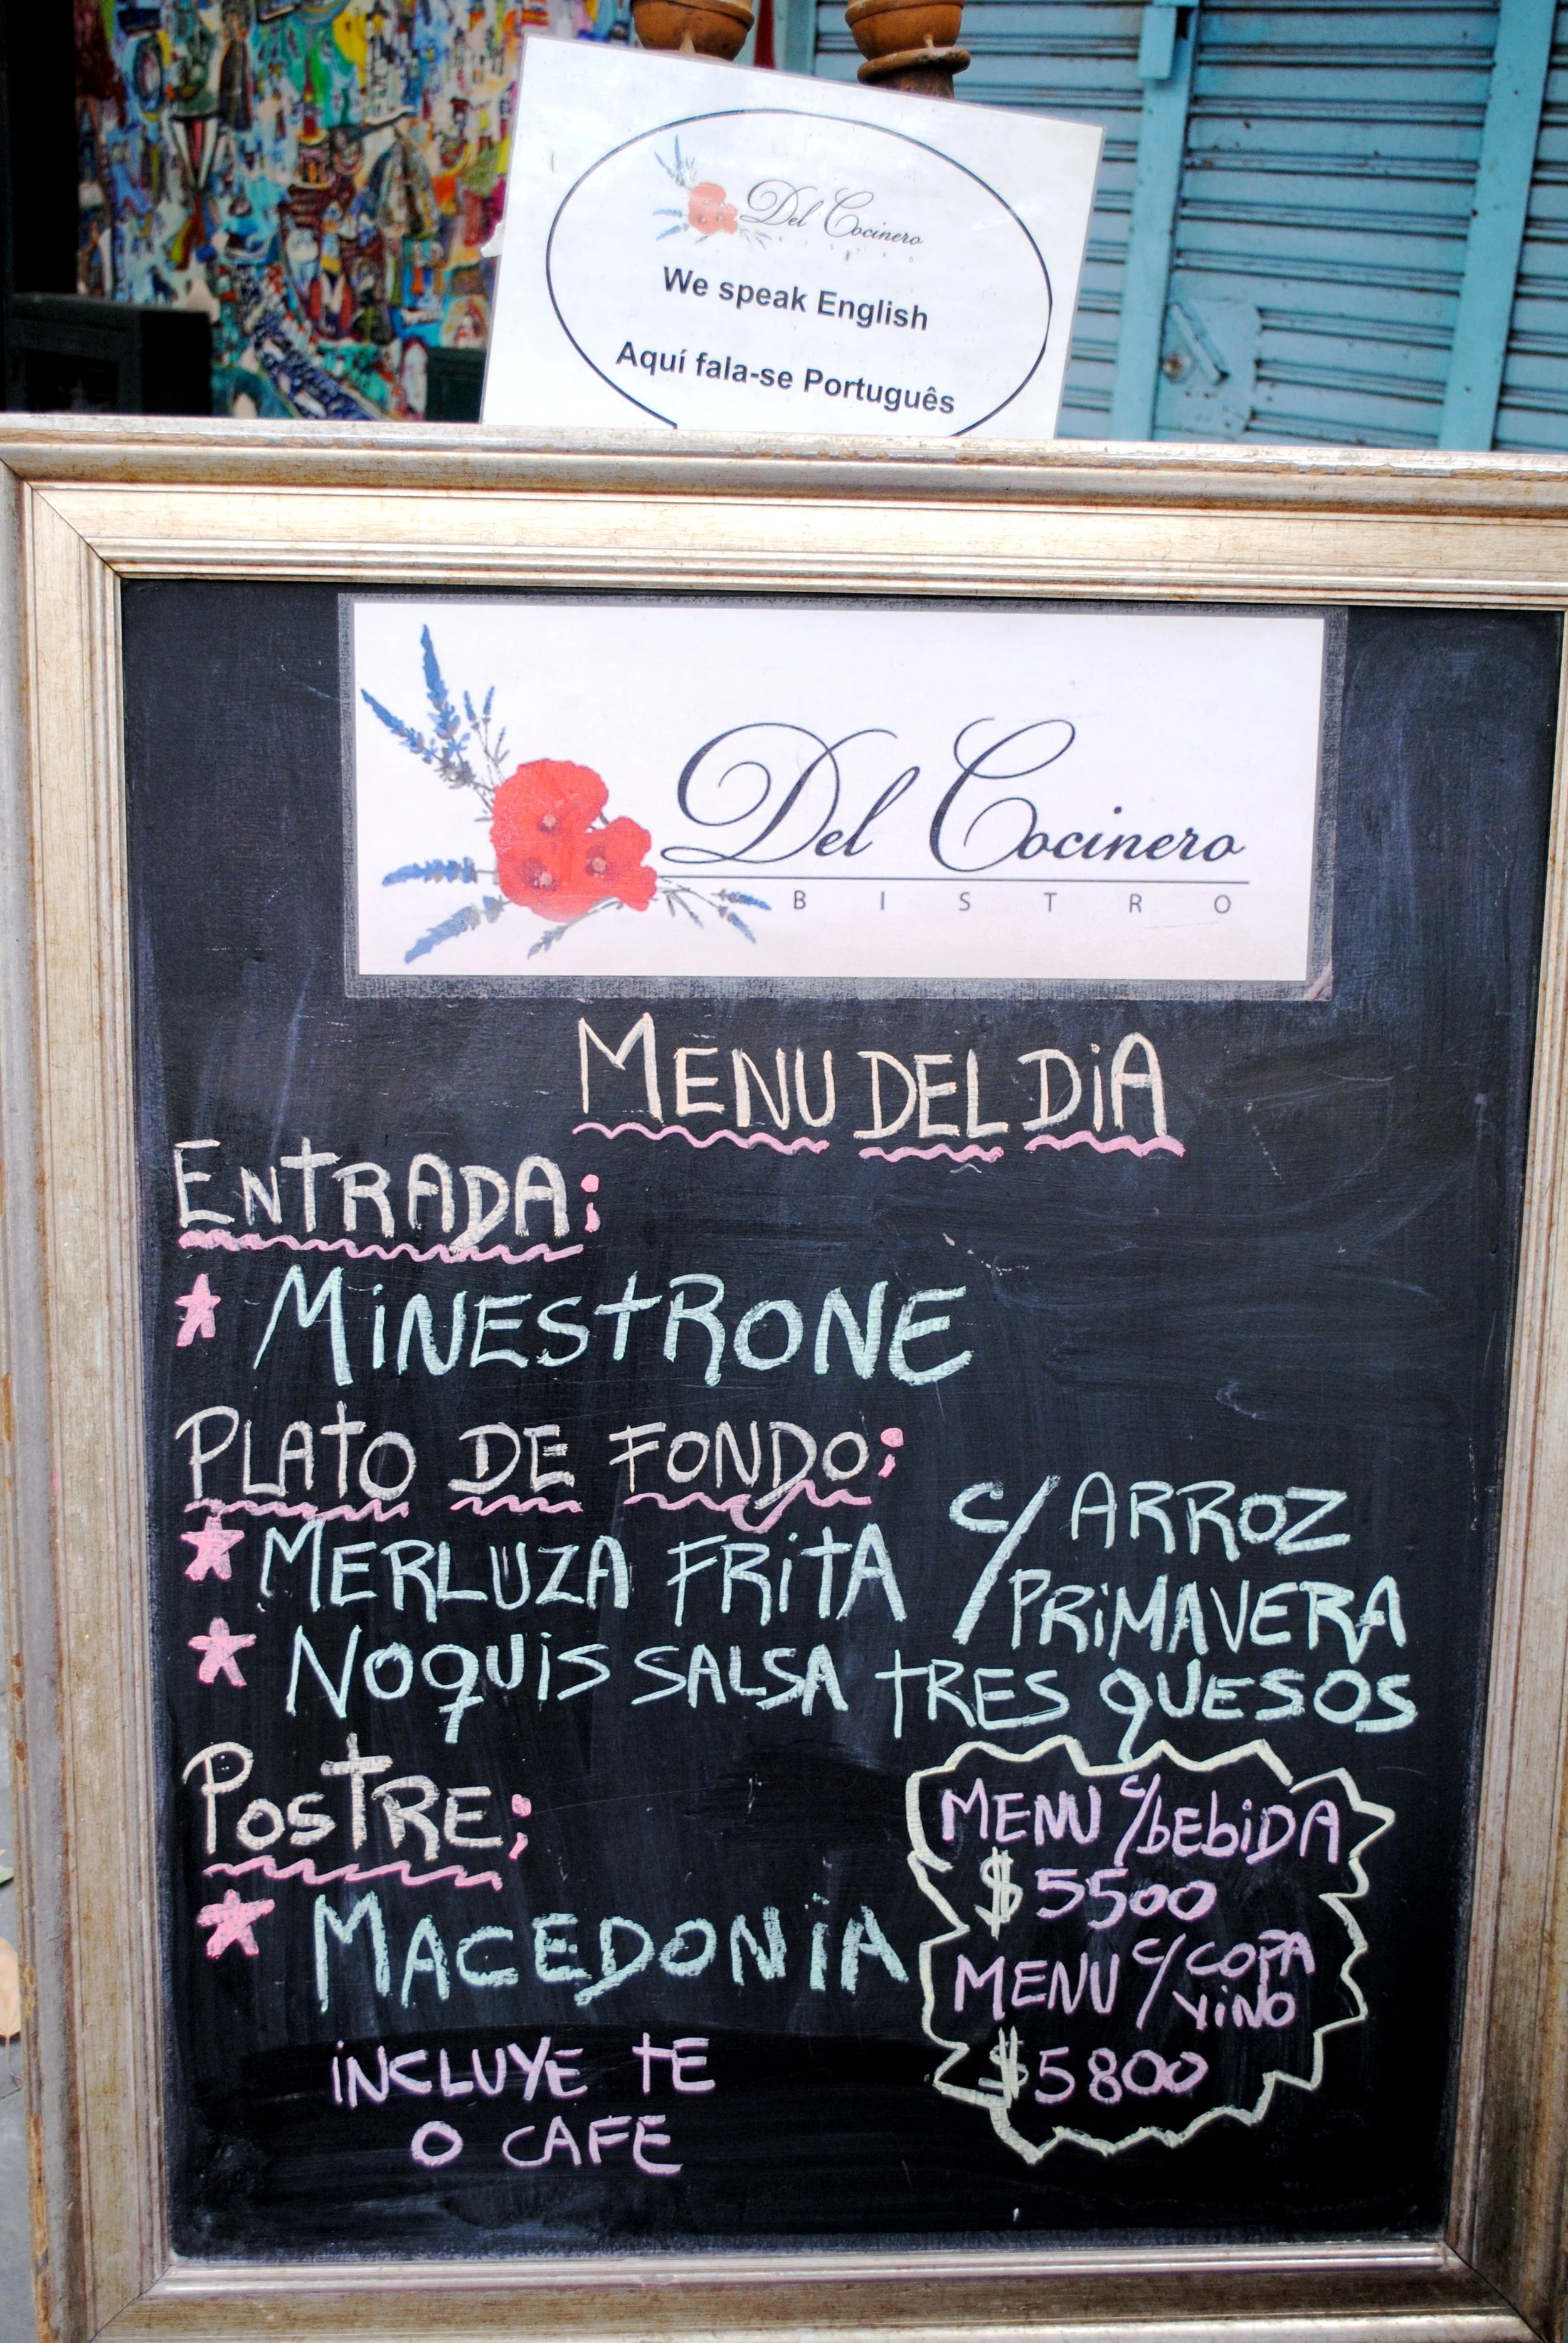 Del Cocinero
BISTRO
We speak English
Aquí fala-se Português
Del Cocinero
BISTRO
MENU DEL DiA
ENTRADA:
* MiNESTRONE
PLATO DE FONDO:
* MERLUZA FRiTA C/ ARROZ
PRiMAVERA
* NOQUiS SALSA TRES QUESOS
POSTRE:
* MACEDONiA
iNCLUYE TE
O CAFE
MENU C/bEbiDA
$5500
MENU C/ COPA
ViNO
$5800